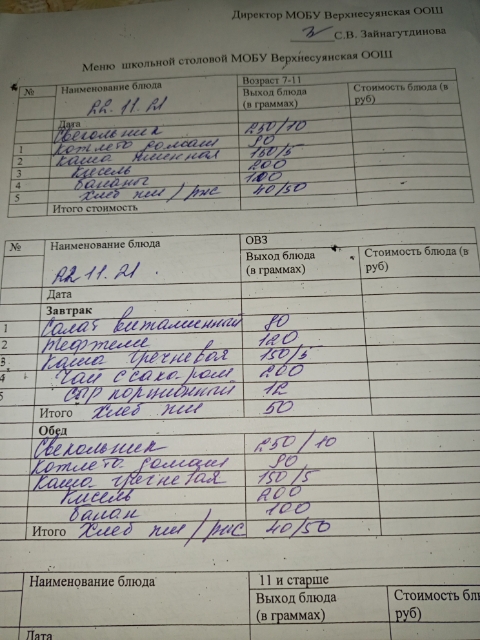 Директор МОБУ Верхнесуянская ООШ
С.В. Зайнагутдинова
Меню школьной столовой МОБУ Верхнесуянская ООШ
№ Наименование блюда Возраст 7-11
22.11.21 Выход блюда (в граммах) Стоимость блюда (в руб)
Дата
Свекольник 250/10
1 Котлета домаш 90
2 Каша 150/5
3 Кисель 200
4 Бананы 100
5 Хлеб пш/рж 40/50
Итого стоимость
№ Наименование блюда ОВЗ
22 11.21. Выход блюда (в граммах) Стоимость блюда (в руб)
Дата
Завтрак
1 Салат витаминный 80
2 Тефтели 120
3 Каша гречневая 150/5
4 Чай с сахаром 200
5 Сыр порционный 12
Итого Хлеб пш 50
Обед
Свекольник 250/10
Котлета домаш 90
Каша гречневая 150/5
Кисель 200
Банан 100
Итого Хлеб пш/рж 40/50
Наименование блюда 11 и старше
Выход блюда (в граммах) Стоимость руб)
Дата